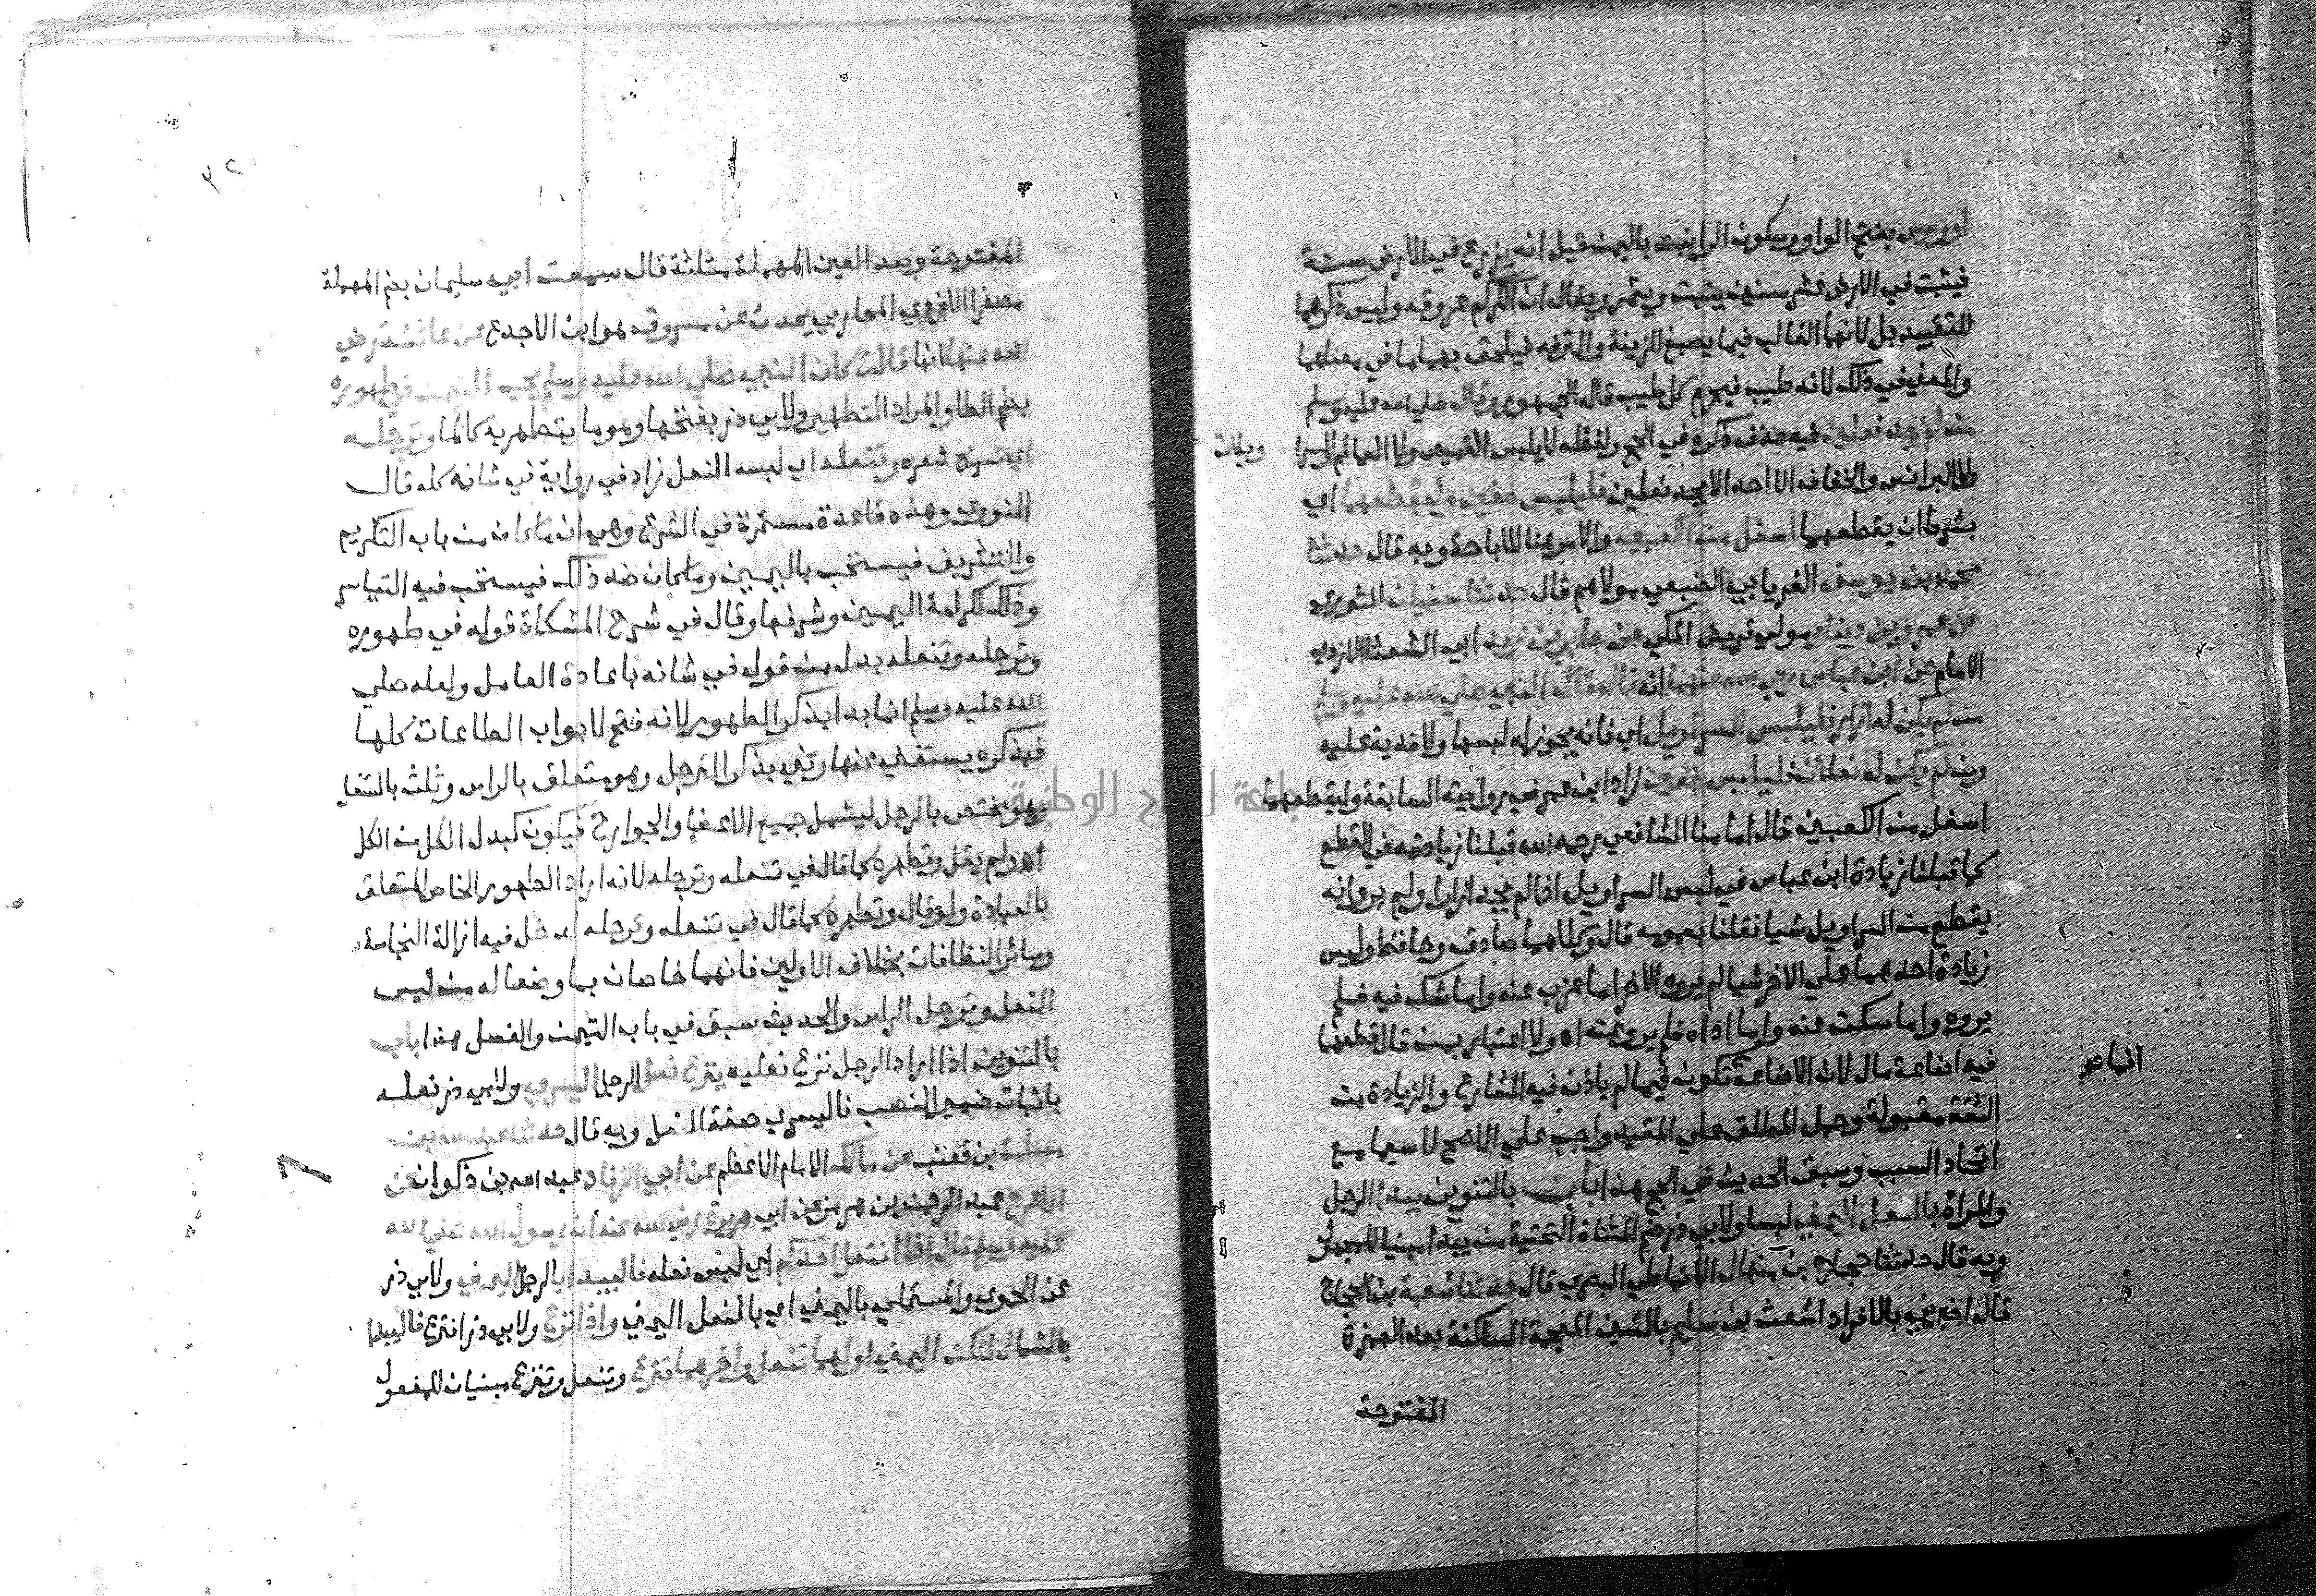 او ورس بفتح الواو وسكون الرا نبت باليمن قيل انه يزرع في الارض سنة
فيثبت في الارض عشر سنين ينبت ويثمر ويقال ان الكركم عروقه وليس ذكرهما
للتقييد بل لانهما الغالب فيما يصبغ للزينة والترفه فيلحق بهما ما في معناهما
والمعني في ذلك لانه طيب فيحرم كل طيب قاله الجمهور وقال صلي الله عليه وسلم
من لم يجد نعلين فيه حذف ذكره في الحج ولفظه لا يلبس القميص ولا العمائم ولا السرا ويلات
ولا البرانس والخفاف الا احد لا يجد نعلين فليلبس خفين وليقطعهما اي
بشرط ان يقطعهما اسفل من الكعبين والامر هنا للاباحة وبه قال حدثنا
محمد بن يوسف الفريابي الضبعي مولاهم قال حدثنا سفيان الثوري
عن عمرو بن دينار مولي قريش المكي عن جابر بن زيد ابي الشعثا الازدي
الامام عن ابن عباس رضي الله عنهما انه قال قال النبي صلي الله عليه وسلم
من لم يكن له ازار فليلبس السراويل اي فانه يجوز له لبسها ولا فدية عليه
ومن لم يكن له نعلان فليلبس خفين زاد ابن عمر في روايته السابقة وليقطعهما
اسفل من الكعبين قال امامنا الشافعي رحمه الله قبلنا زيادته في القطع
كما قبلنا زيادة ابن عباس في لبس السراويل اذا لم يجد ازارا ولم يرو انه
يقطع من السراويل شيا فقلنا بعمومه قال وكلاهما صادق وحافظ وليس
زيادة احدهما علي الاخر شيا لم يروه الاخر اما عزب عنه واما شك فيه فلم
يروه واما سكت عنه واما اداه فلم يرو عنه اه ولا اعتبار بمن قال قطعهما
فيه اضاعة مال لان الاضاعة تكون فيما لم ياذن فيه الشارع والزيادة من
الثقة مقبولة وحمل المطلق علي المقيد واجب علي الاصح لا سيما مع
اتحاد السبب وسبق الحديث في الحج هذا باب بالتنوين يبدا الرجل
والمراة بالنعل اليمني لبسا ولابي ذر ضم المثناة التحتية من يبدا مبنيا للمجهول
وبه قال حدثنا حجاج بن منهال الانماطي البصري قال حدثنا شعبة بن الحجاج
قال اخبرني بالافراد اشعث بن سليم بالشين المعجمة الساكنة بعد الهمزة
المفتوحة
٣٢
المفتوحة وبعد العين المهملة مثلثة قال سمعت ابي سليمان بضم المهملة
مصغرا الازدي المحاربي يحدث عن مسروق هو ابن الاجدع عن عائشة رضي
الله عنها انها قالت كان النبي صلي الله عليه وسلم يحب التيمن في طهوره
بضم الطا والمراد التطهير ولابي ذر بفتحها وهو ما يتطهر به كالما وترجله
اي تسريح شعره وتنعله اي لبسه النعل زاد في رواية في شانه كله قال
النووي وهذه قاعدة مستمرة في الشرع وهي ان ما كان من باب التكريم
والتشريف فيستحب باليمين وما كان ضد ذلك فيستحب فيه التياسر
وذلك لكرامة اليمين وشرفها وقال في شرح المشكاة قوله في طهوره
وترجله وتنعله بدل من قوله في شانه باعادة العامل ولعله صلي
الله عليه وسلم انما بدا بذكر الطهور لانه فتح لابواب الطاعات كلها
فبذكره يستغني عنها وثني بذكر الترجل وهو متعلق بالراس وثلث بالتنعل
وهو مختص بالرجل ليشمل جميع الاعضا والجوارح فيكون كبدل الكل من الكل
اه ولم يقل وتطهره كما قال في تنعله وترجله لانه اراد الطهور الخاص المتعلق
بالعبادة ولو قال وتطهره كما قال في تنعله وترجله لدخل فيه ازالة النجاسة
وسائر النظافات بخلاف الاولين فانهما خاصان بما وضعا له من لبس
النعل وترجل الراس والحديث سبق في باب التيمن والغسل هذا باب
بالتنوين اذا اراد الرجل نزع نعليه ينزع نعل الرجل اليسري ولابي ذر نعله
باثبات ضمير النصب فاليسري صفة النعل وبه قال حدثنا عبد الله بن
مسلمة بن قعنب عن مالك الامام الاعظم عن ابي الزناد عبد الله بن ذكوان عن
الاعرج عبد الرحمن بن هرمز عن ابي هريرة رضي الله عنه ان رسول الله صلي الله
عليه وسلم قال اذا انتعل احدكم اي لبس نعله فاليبدا بالرجل اليمني ولابي ذر
عن الحموي والمستملي باليمني اي بالنعل اليمني واذا نزع ولابي ذر انتزع فاليبدا
بالشمال لتكن اليمني اولهما تنعل واخرهما تنزع وتنعل وتنزع مبنيان للمفعول
جامعة النجاح الوطنية